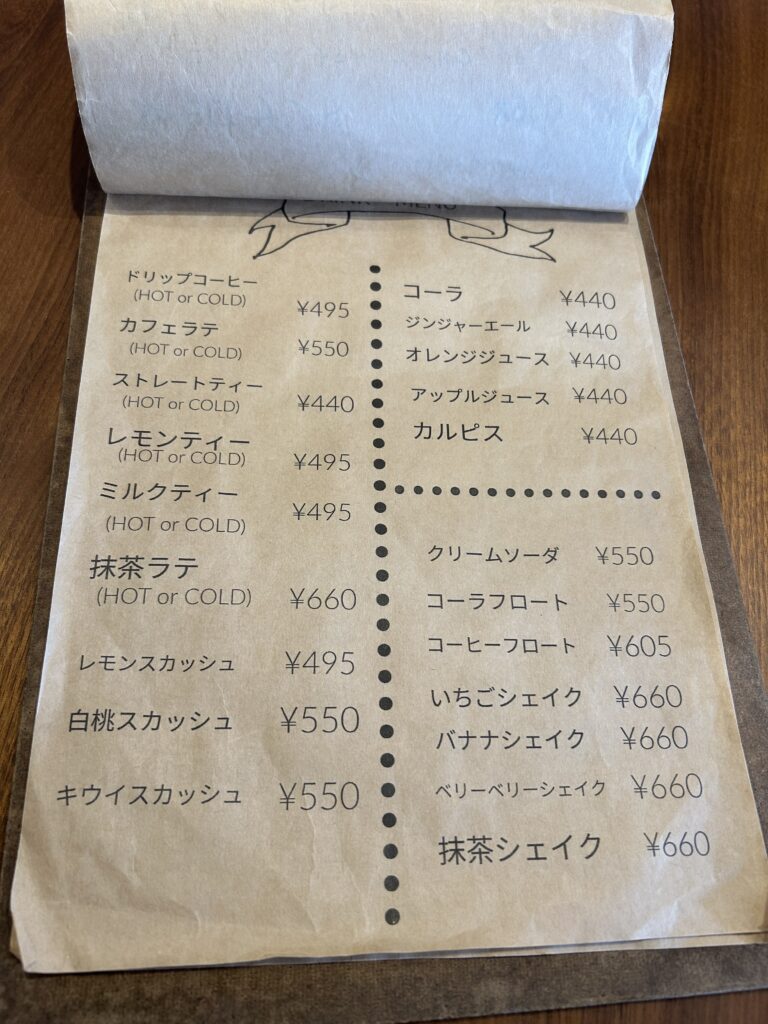 MENU
ドリップコーヒー
(HOT or COLD) ¥495
カフェラテ
(HOT or COLD) ¥550
ストレートティー
(HOT or COLD) ¥440
レモンティー
(HOT or COLD) ¥495
ミルクティー
(HOT or COLD) ¥495
抹茶ラテ
(HOT or COLD) ¥660
レモンスカッシュ ¥495
白桃スカッシュ ¥550
キウイスカッシュ ¥550
コーラ ¥440
ジンジャーエール ¥440
オレンジジュース ¥440
アップルジュース ¥440
カルピス ¥440
クリームソーダ ¥550
コーラフロート ¥550
コーヒーフロート ¥605
いちごシェイク ¥660
バナナシェイク ¥660
ベリーベリーシェイク ¥660
抹茶シェイク ¥660